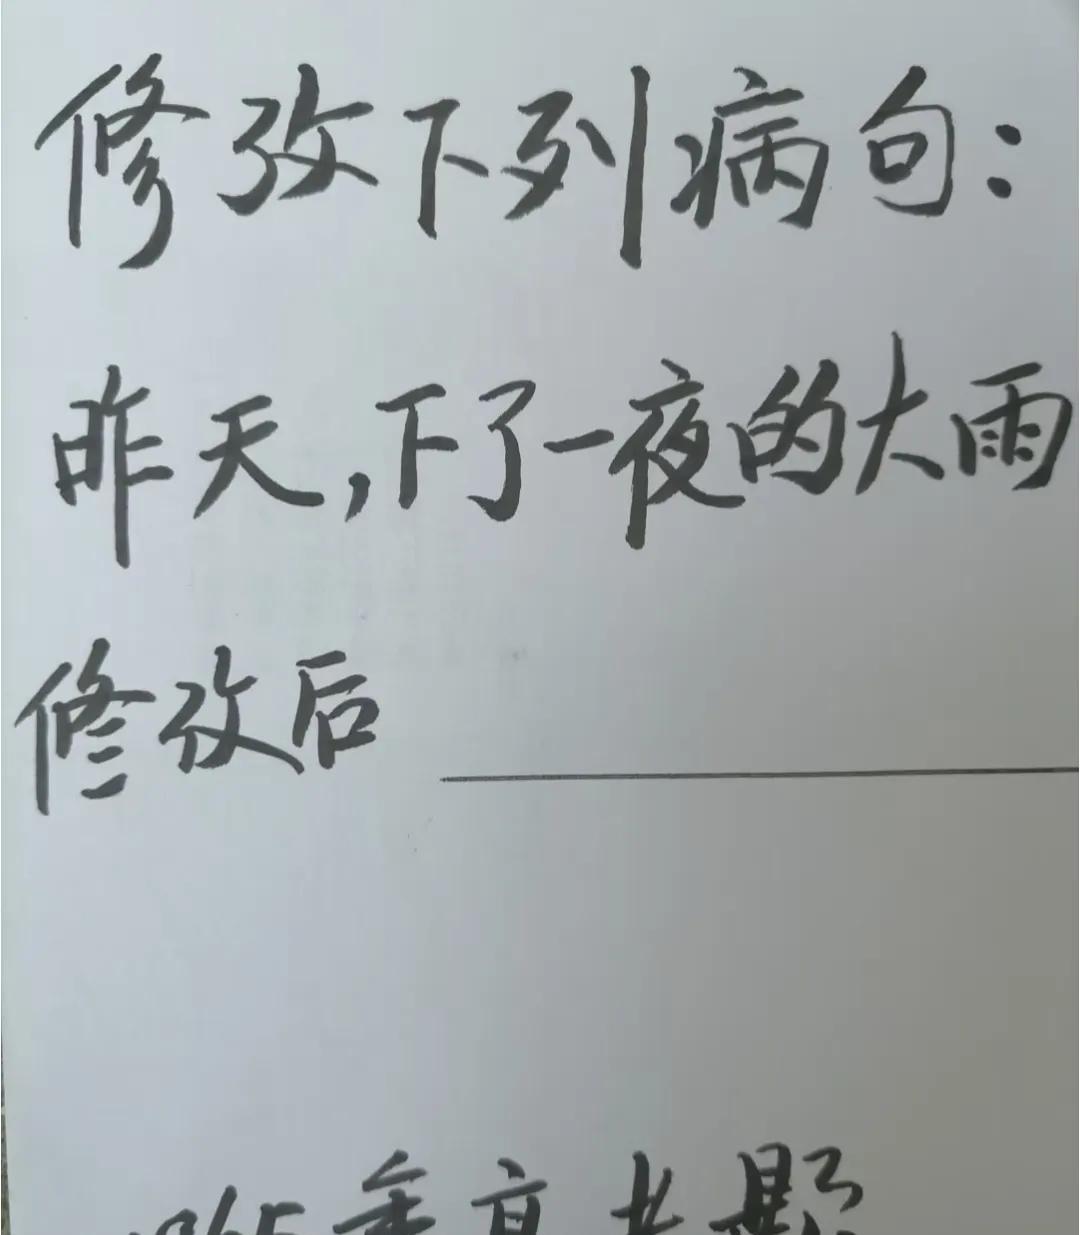 修改下列病句：
昨天，下了一夜的大雨
修改后
年高考题